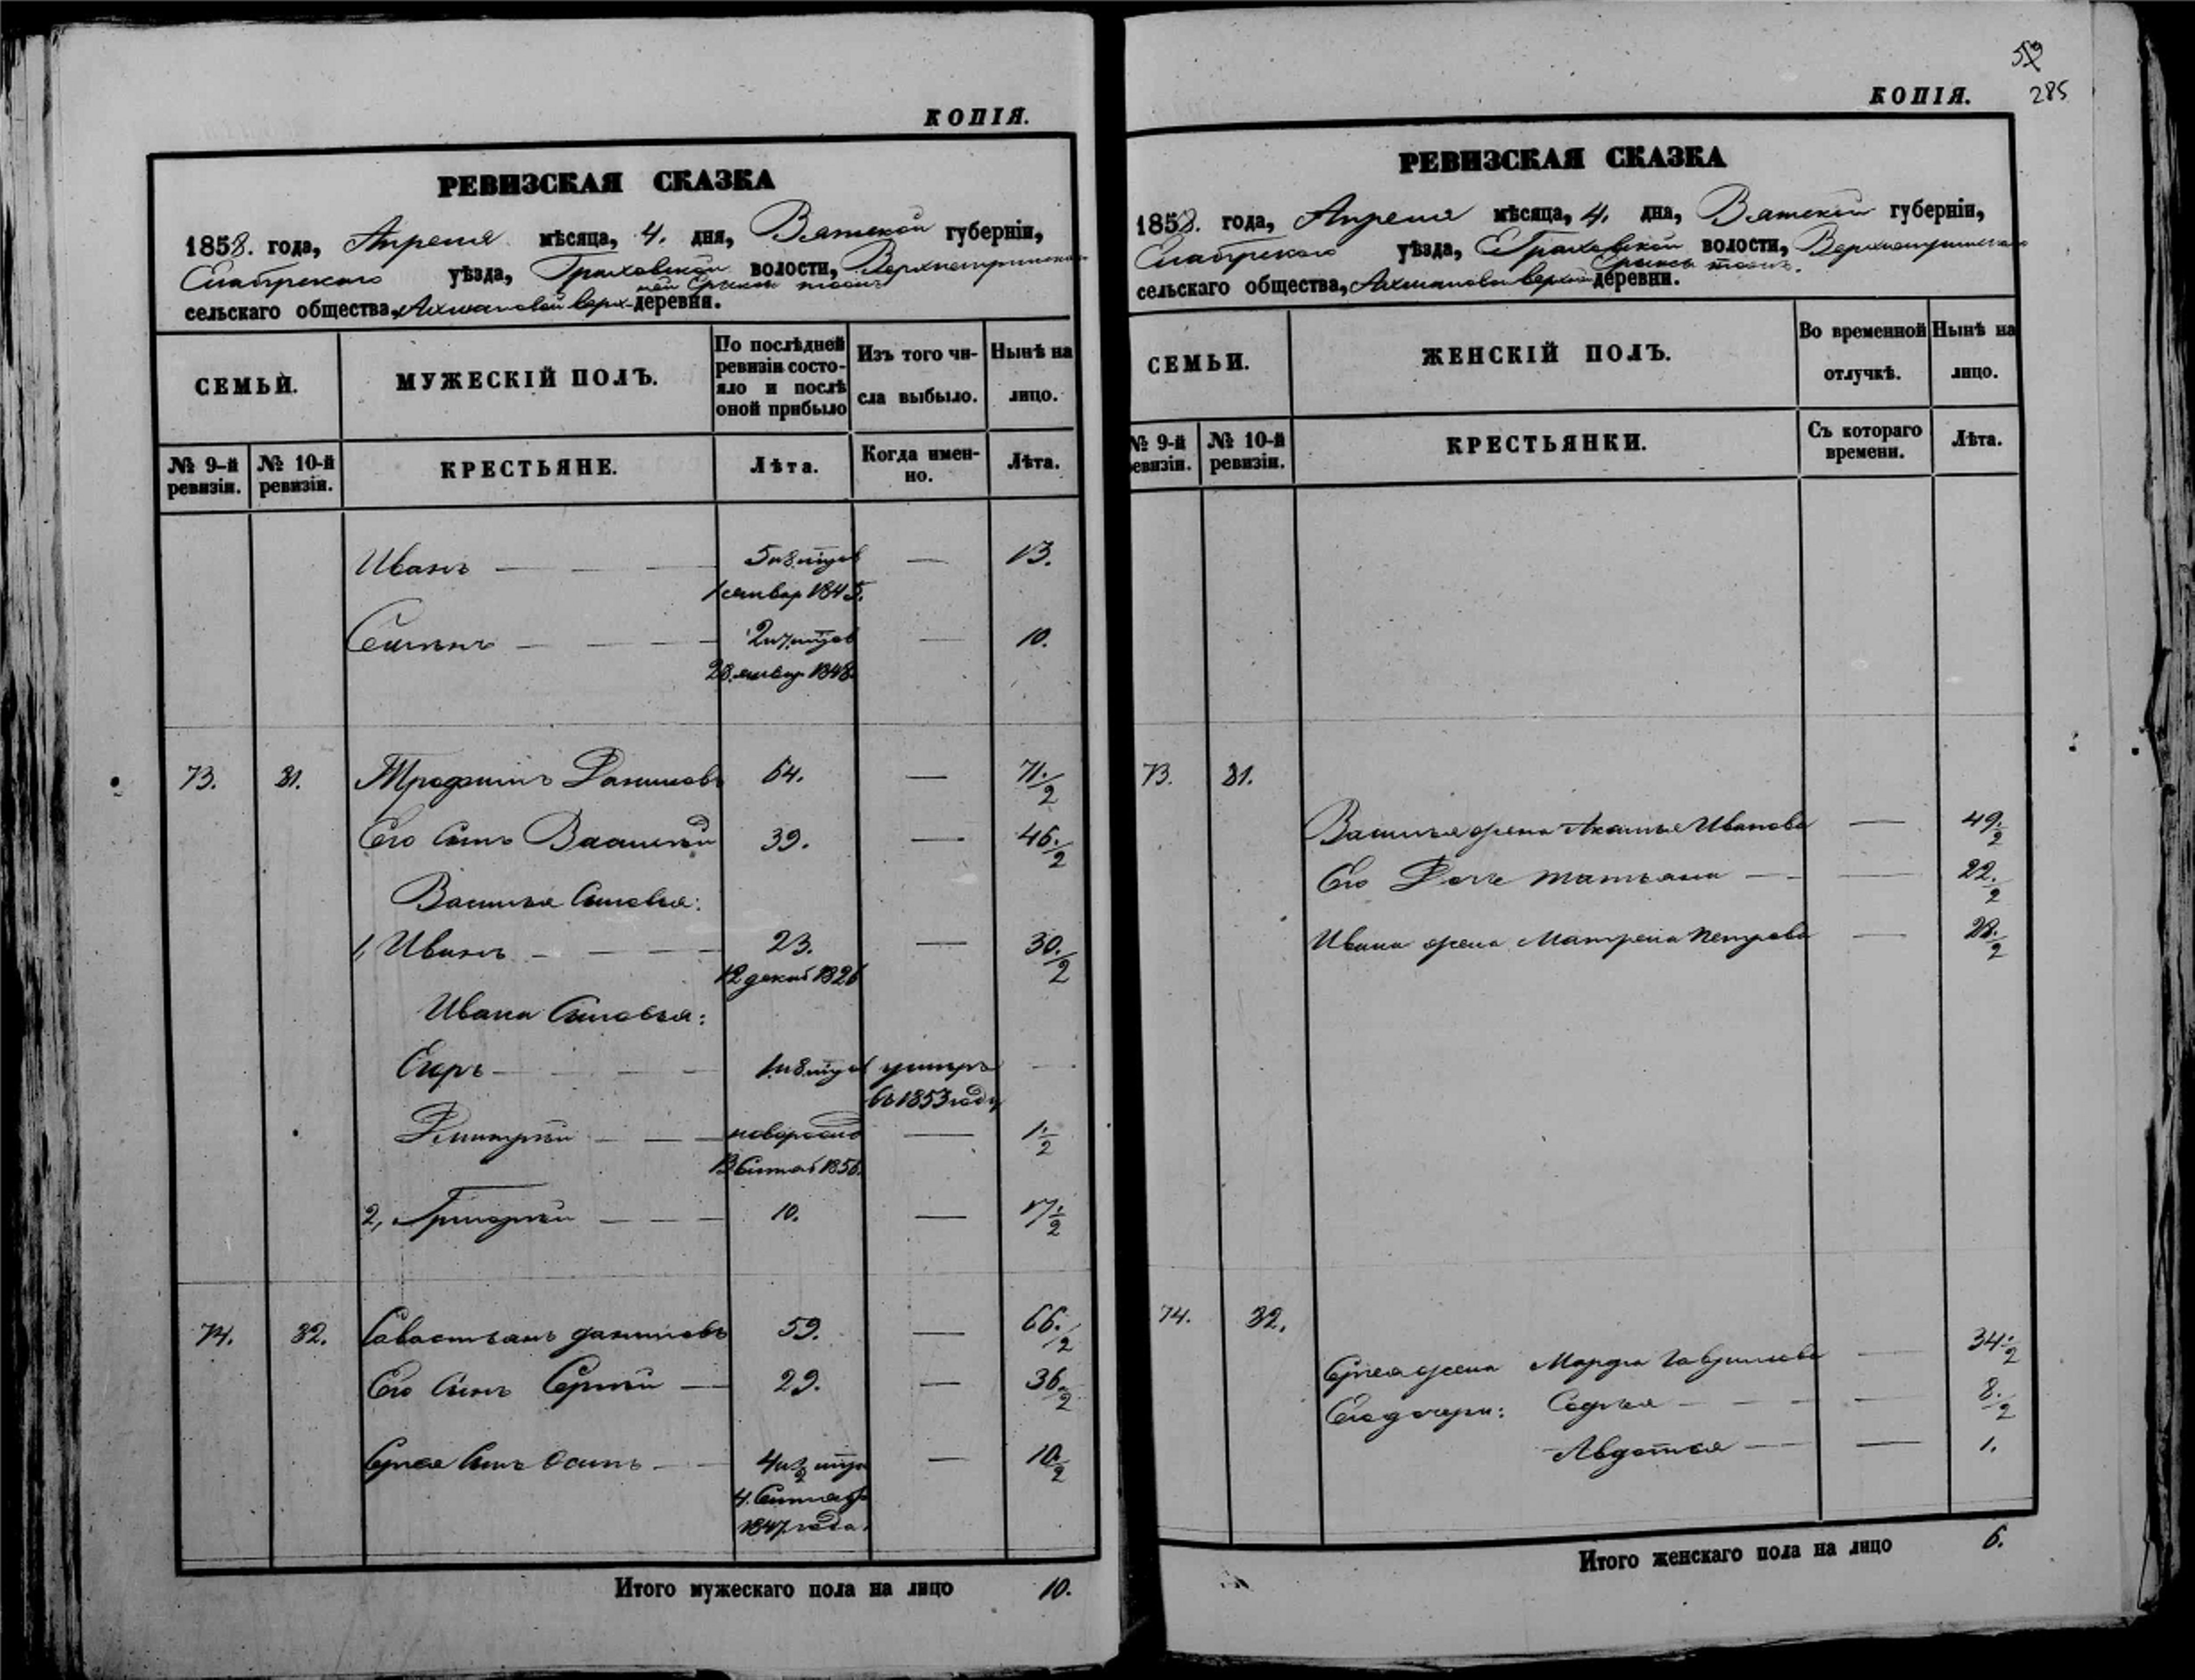 КОПІЯ.
РЕВИЗСКАЯ СКАЗКА
1858. года, Апреля мѣсяца, 4. дня, Вятской губерніи,
Елабужскаго уѣзда, Граховской волости,
сельскаго общества, деревни.
СЕМЬИ.
МУЖЕСКІЙ ПОЛЪ.
По послѣдней ревизіи состояло и послѣ оной прибыло
Изъ того числа выбыло.
Нынѣ на лицо.
№ 9-й ревизіи.
№ 10-й ревизіи.
КРЕСТЬЯНЕ.
Лѣта.
Когда именно.
Лѣта.
Иванъ — — — — 13.
1 январ 1845.
Семенъ — — — — 10.
28 январ 1848
73. 81. Трофимъ Даниловъ 64. — 71 1/2
Его сынъ Василий 39. — 46 1/2
Василья сыновья:
1, Иванъ — — — 23. — 30 1/2
12 декаб 1826
Ивана сыновья:
Егоръ — — — умеръ —
въ 1853 году
Дмитрий — — — новорожд — 1 1/2
1856.
2, Григорий — — — 10. — 17 1/2
74. 82. Савастьянъ Даниловъ 59. — 66 1/2
Его сынъ Сергий — 29. — 36 1/2
Сергея сынъ Осипъ — — — 10 1/2
4. Сентяб
1847 года.
Итого мужескаго пола на лицо 10.
59
285
КОПІЯ.
РЕВИЗСКАЯ СКАЗКА
1858. года, Апреля мѣсяца, 4. дна, Вятской губерніи,
Елабужскаго уѣзда, Граховской волости,
сельскаго общества, деревни.
СЕМЬИ.
ЖЕНСКІЙ ПОЛЪ.
Во временной отлучкѣ.
Нынѣ на лицо.
№ 9-й ревизіи.
№ 10-й ревизіи.
КРЕСТЬЯНКИ.
Съ котораго времени.
Лѣта.
73. 81.
Василья жена Иванова — 49 1/2
Его дочь Татьяна — — 22 1/2
Ивана жена Матрена Петрова — 28 1/2
74. 82.
Сергея жена Марфа Гаврилова — 34 1/2
Его дочери: Софья — — — 8 1/2
Авдотья — — 1.
Итого женскаго пола на лицо 6.